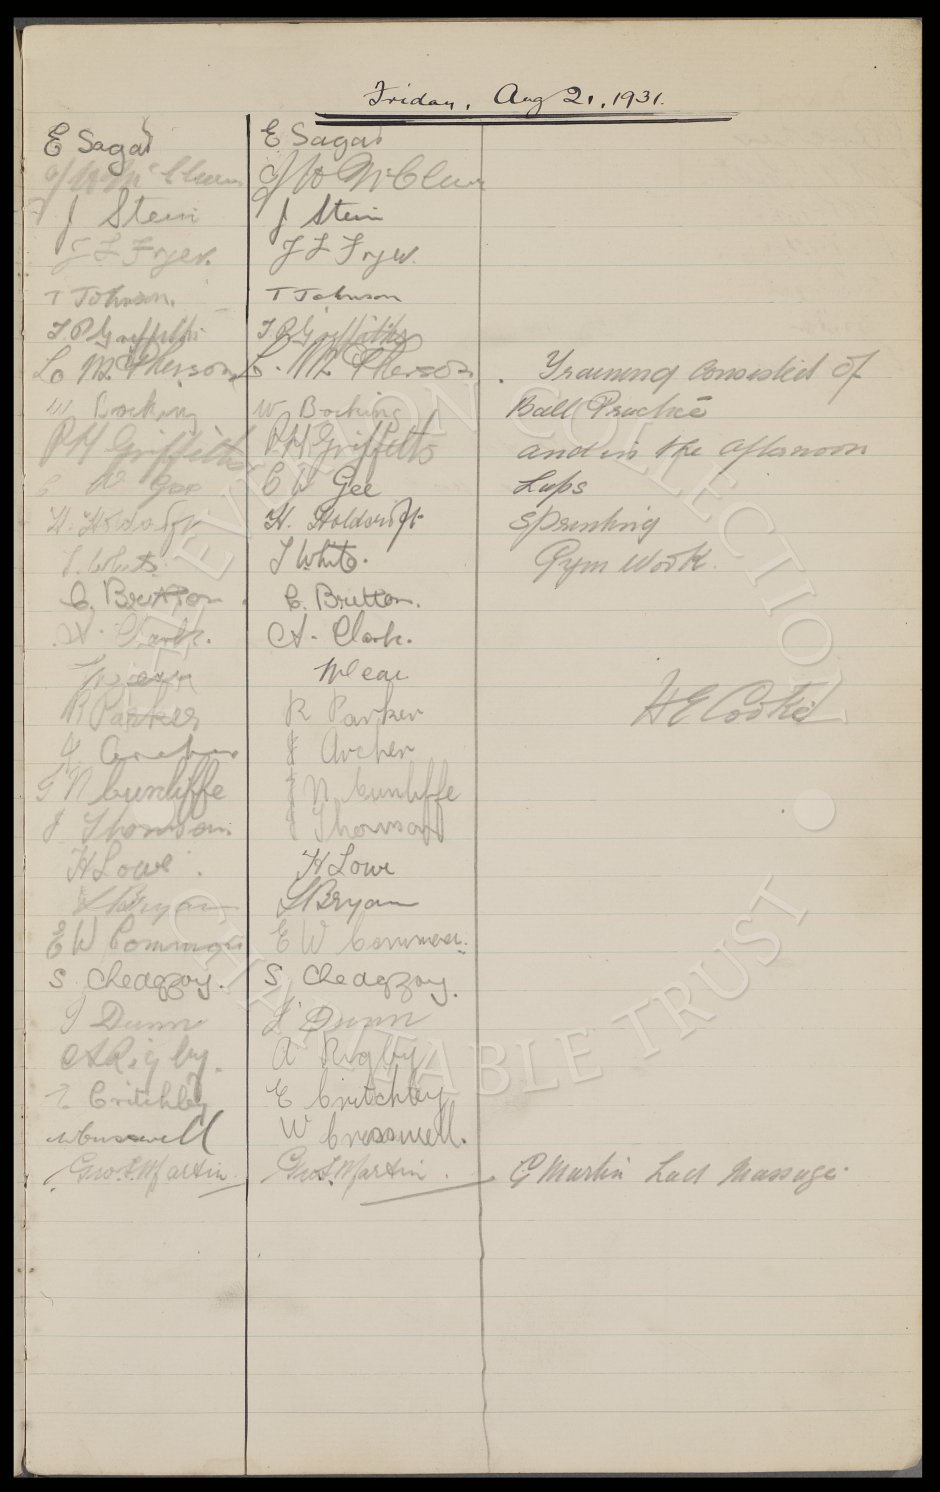 Friday, Aug 21, 1931.
E Sagar E Sagar
J W McClure J W McClure
J Stein J Stein
J L Fryer. J L Fryer.
T Johnson. T Johnson
T. P Griffiths T. P Griffiths
L. McPherson L. McPherson. Training Consisted of
W Bocking W Bocking Ball Practice
P H Griffiths P H Griffiths and in the afternoon
C W Gee C W Gee Laps
H. Holdcroft H. Holdcroft Sprinting
T. White. T White. Gym Work.
C. Britton. C. Britton.
A. Clark. A. Clark.
McCar
R Parker R Parker H E Cooke
J. Archer J Archer
J N Cunliffe J N Cunliffe
J Thomson. J Thomson
H Lowe. H Lowe
L Bryan L Bryan
E W Common E W Common.
S. Chedgzoy. S. Chedgzoy.
J Dunn J Dunn
A Rigby. A Rigby
E Critchley E Critchley
W Cresswell W Cresswell.
Geo. S. Martin. Geo. S. Martin. G Martin Had Massage.
THE EVERTON COLLECTION
CHARITABLE TRUST